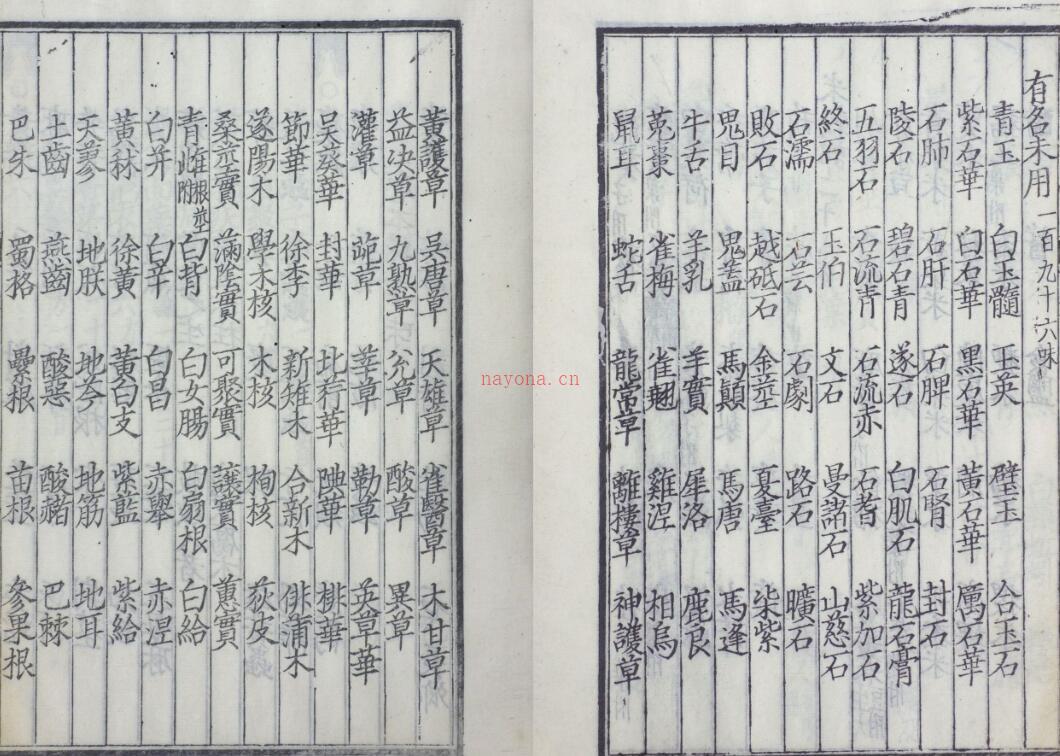 有名未用一百九十六味
青玉 白玉髓 玉英 璧玉 合玉石
紫石華 白石華 黑石華 黃石華 厲石華
石肺 石肝 石脾 石腎 封石
陵石 碧石青 遂石 白肌石 龍石膏
五羽石 石流青 石流赤 石耆 紫加石
終石 玉伯 文石 曼諸石 山慈石
石濡 石芸 石劇 路石 曠石
敗石 越砥石 金莖 夏臺 柒紫
鬼目 鬼蓋 馬顛 馬唐 馬逢
牛舌 羊乳 羊實 犀洛 鹿良
菟棗 雀梅 雀翹 雞涅 相烏
鼠耳 蛇舌 龍常草 離樓草 神護草
黃護草 吳唐草 天雄草 雀醫草 木甘草
益決草 九熟草 兊草 酸草 異草
灌草 茈草 莘草 勒草 英草華
吳葵華 封華 北荇華 腆華 棑華
節華 徐李 新雉木 合新木 俳蒲木
遂陽木 學木核 木核 栒核 荻皮
桑莖實 滿陰實 可聚實 讓實 蕙實
青雌 根莖附 白背 白女腸 白扇根 白給
白并 白辛 白昌 赤舉 赤涅
黃秫 徐黃 黃白支 紫藍 紫給
天蓼 地朕 地芩 地筋 地耳
土齒 燕齒 酸惡 酸赭 巴棘
巴朱 蜀格 纍根 苗根 參果根
nayona.cn